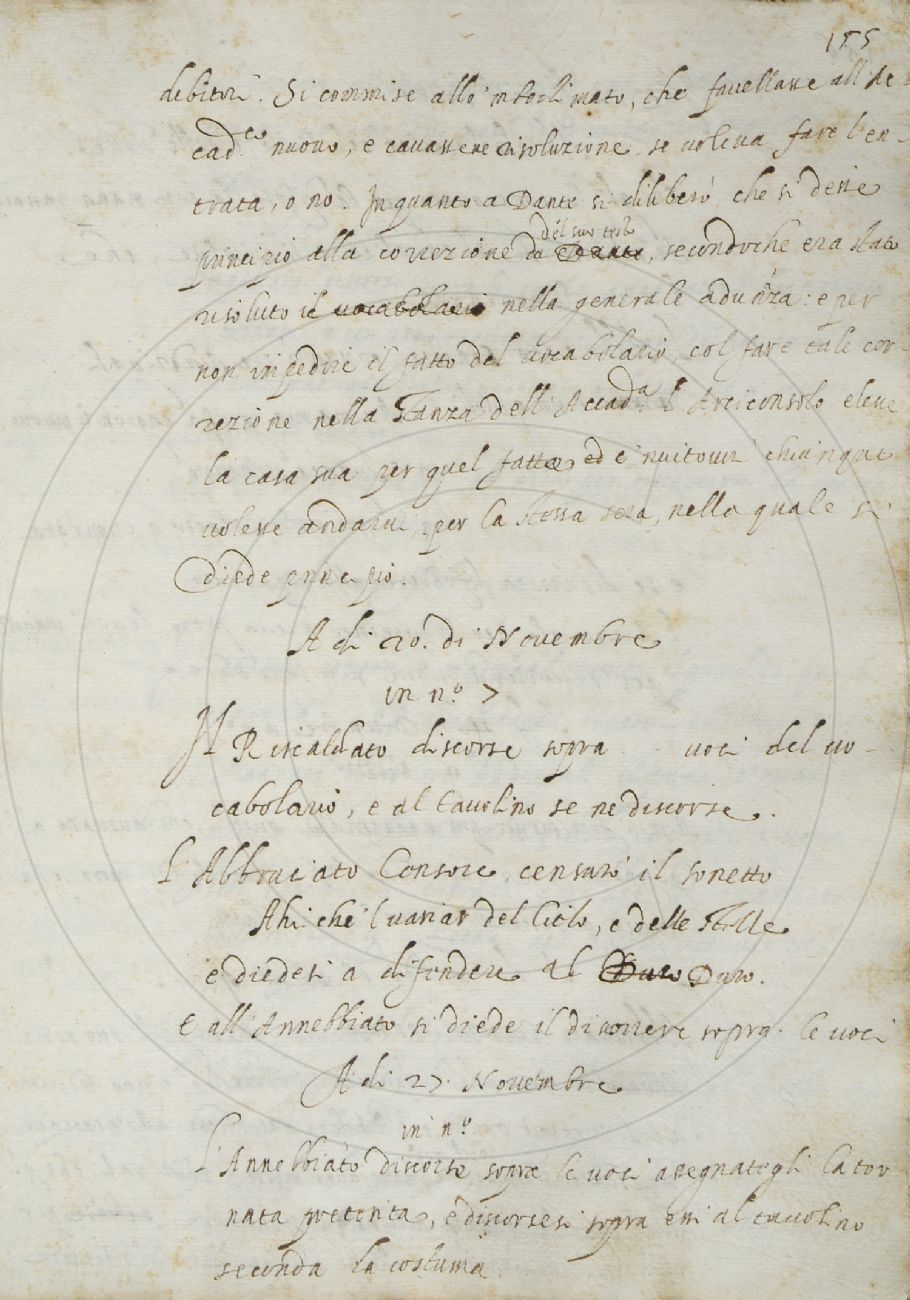 155
debitori. Si commise allo 'nfarinato, che favellasse all'Ac-
cad.co nuovo, e cavassene risoluzione se voleva fare l'en-
trata, o no. In quanto a Dante si diliberò, che si desse
del suo testo
principio alla correzione da Dante, secondoche era stato
risoluto il vocabolario nella generale adunza: e per
non impedire il fatto del vocabolario, col fare tale cor-
rezione nella Stanza dell'Accad.a l'Arciconsolo elesse
la casa sua per quel fatto ed e' nvitovvi chiunque
volesse andarvi, per la stessa sera, nella quale si
diede principio.
A dì 20. di Novembre
in n.o 7
Il Riscaldato discorse sopra voci del vo-
cabolario, e al tavolino se ne discorse.
L'Abbruciato Censore censurò il sonetto
Ahi che 'l variar del Cielo, e delle Stelle
e diedesi a difendere al Duro Duro.
E all'Annebbiato si diede il discorrere sopra le voci
A dì 27. Novembre
in n.o
L'Annebbiato discorse sopra le voci assegnategli la tor
nata preterita, e discorsesi sopra essi al tavolino
seconda la costuma